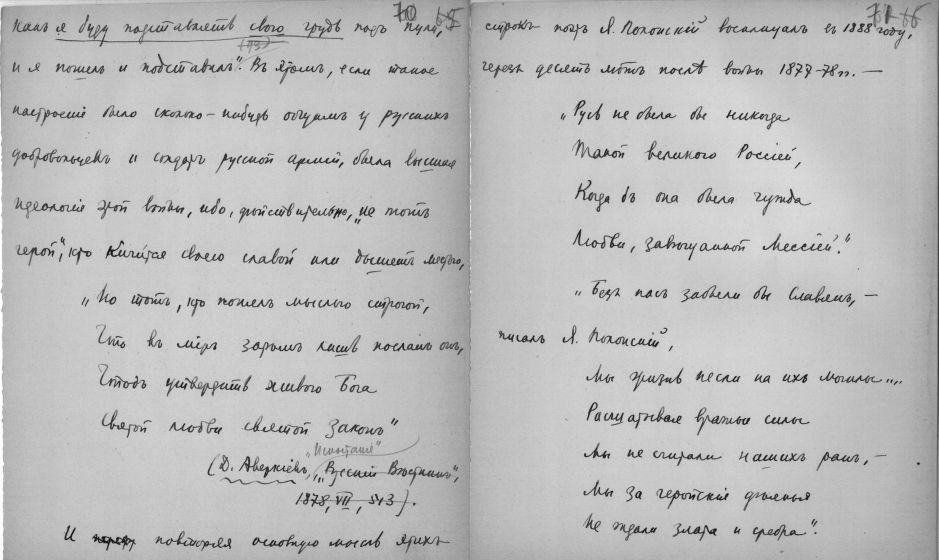 70 65
какъ я буду подставлять свою грудь подъ пули,
(173)
и я пошелъ и подставилъ". Въ этомъ, если такое
настроеніе было сколько-нибудь общимъ у русскихъ
добровольцевъ и солдатъ русской арміи, была высшая
идеологія этой войны, ибо, дѣйствительно, "не тотъ
герой", кто кичится своею славой или дышетъ местью,
"Но тотъ, кто понялъ мыслью строгой,
Что въ міръ затѣмъ лишь посланъ онъ,
Чтобъ утвердить живого Бога
Святой любви святой законъ"
"Испытанія"
(Д. Аверкіевъ, "Русскій Вѣстникъ",
1878, VII, 513).
И повторяя основную мысль этихъ
71 66
строкъ поэтъ Я. Полонскій восклицалъ въ 1888 году,
черезъ десять лѣтъ послѣ войны 1877-78 гг. —
"Русь не была бы никогда
Такой великою Россіей,
Когда бъ она была чужда
Любви, завѣщанной Мессіей."
"Безъ насъ забыли бы Славянъ, —
писалъ Я. Полонскій,
Мы жизнь несли на ихъ могилы...
Расшатывая вражьи силы
Мы не считали нашихъ ранъ, —
Мы за геройскія дѣянья
Не ждали злата и сребра."